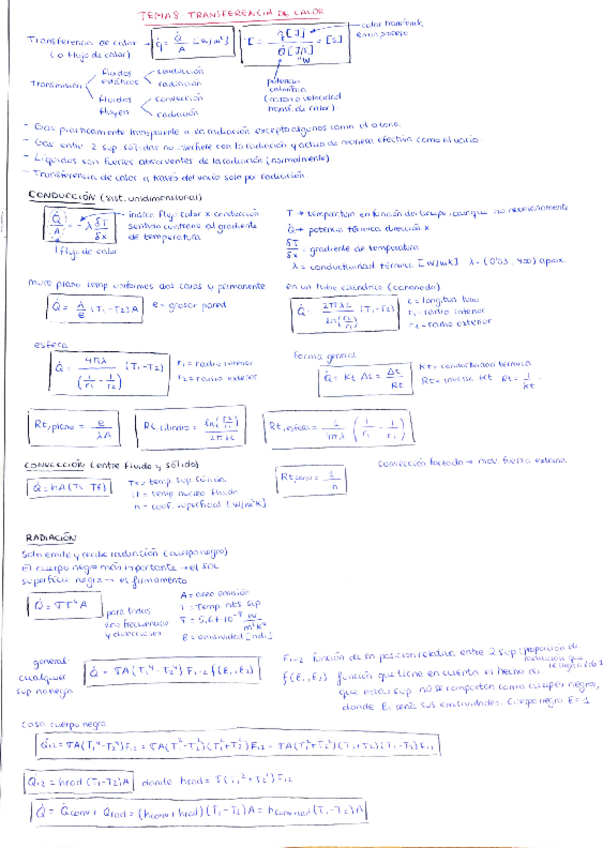 TEMA 8 TRANSFERENCIA DE CALOR
Transferencia de calor (o flujo de calor) → q̇ = Q̇/A [W/m²]
τ = q[J]/Q̇[J/s] = [s]
calor transferido en un proceso
"W
potencia calorífica (razón o velocidad transf. de calor)
Transmisión
fluidos estáticos
conducción
radiación
fluidos fluyen
convección
radiación
- Gas prácticamente transparente a la radiación excepto algunos como el ozono.
- Gas entre 2 sup sólidas no interfiere con la radiación y actúa de manera efectiva como el vacío.
- Líquidos son fuertes absorventes de la radiación (normalmente)
- Transferencia de calor a través del vacío solo por radiación.
CONDUCCIÓN (sist. unidimensional)
Q̇/A = -λ δT/δx
indica flujo calor x conducción
sentido contrario al gradiente
de temperatura
flujo de calor
T → temperatura en función del tiempo, aunque no necesariamente
Q̇ → potencia térmica dirección x
δT/δx - gradiente de temperatura
λ = conductividad térmica [W/mK] λ = (0'03, 400) aprox.
Muro plano temp uniformes dos caras y permanente
Q̇ = λ/e (T1-T2)A
e = grosor pared
en un tubo cilíndrico (coronado)
Q̇ = 2πλL/ln(r2/r1) (T1-T2)
L = longitud tubo
r1 = radio interior
r2 = radio exterior
esfera
Q̇ = 4πλ/(1/r1 - 1/r2) (T1-T2)
r1 = radio interior
r2 = radio exterior
forma general
Q̇ = Kt Δt = Δt/Rt
Kt = conductividad térmica
Rt = inversa Kt Rt = 1/Kt
Rt,plano = e/λA
Rt,cilindro = ln(r2/r1)/2πλL
Rt,esfera = 1/4πλ (1/r1 - 1/r2)
CONVECCIÓN (entre fluido y sólido)
Q̇ = hA(Ts-Tf)
Ts = temp sup. sólida
Tf = temp núcleo fluido
h = coef. superficial [W/m²K]
Convección forzada → mov. fuerza externa
RADIACIÓN
Solo emite y recibe radiación (cuerpo negro)
El cuerpo negro más importante → el sol
superficie negra → el firmamento
Q̇ = σT⁴A
para todas las frecuencias y direcciones
A = área emisión
T = Temp. abs sup
σ = 5,67·10⁻⁸ W/m²K⁴
general cualquier sup no negra
Q̇ = σA(T1⁴-T2⁴)F1-2 f(E1,E2)
F1-2 función de su posición relativa entre 2 sup: proporción de
f(E1,E2) función que tiene en cuenta el hecho de
que estas sup no se comportan como cuerpos negros,
donde Ei sería sus emisividades. Cuerpo negro E = 1
Caso cuerpo negro
Q̇12 = σA(T1⁴-T2⁴)F12 = σA(T1²-T2²)(T1²+T2²)F12 = σA(T1²+T2²)(T1+T2)(T1-T2)F12
Q̇12 = hrad (T1-T2)A donde
Q̇ = Q̇conv + Q̇rad = (hconv+hrad)(T1-T2)A = hconv+rad(T1-T2)A